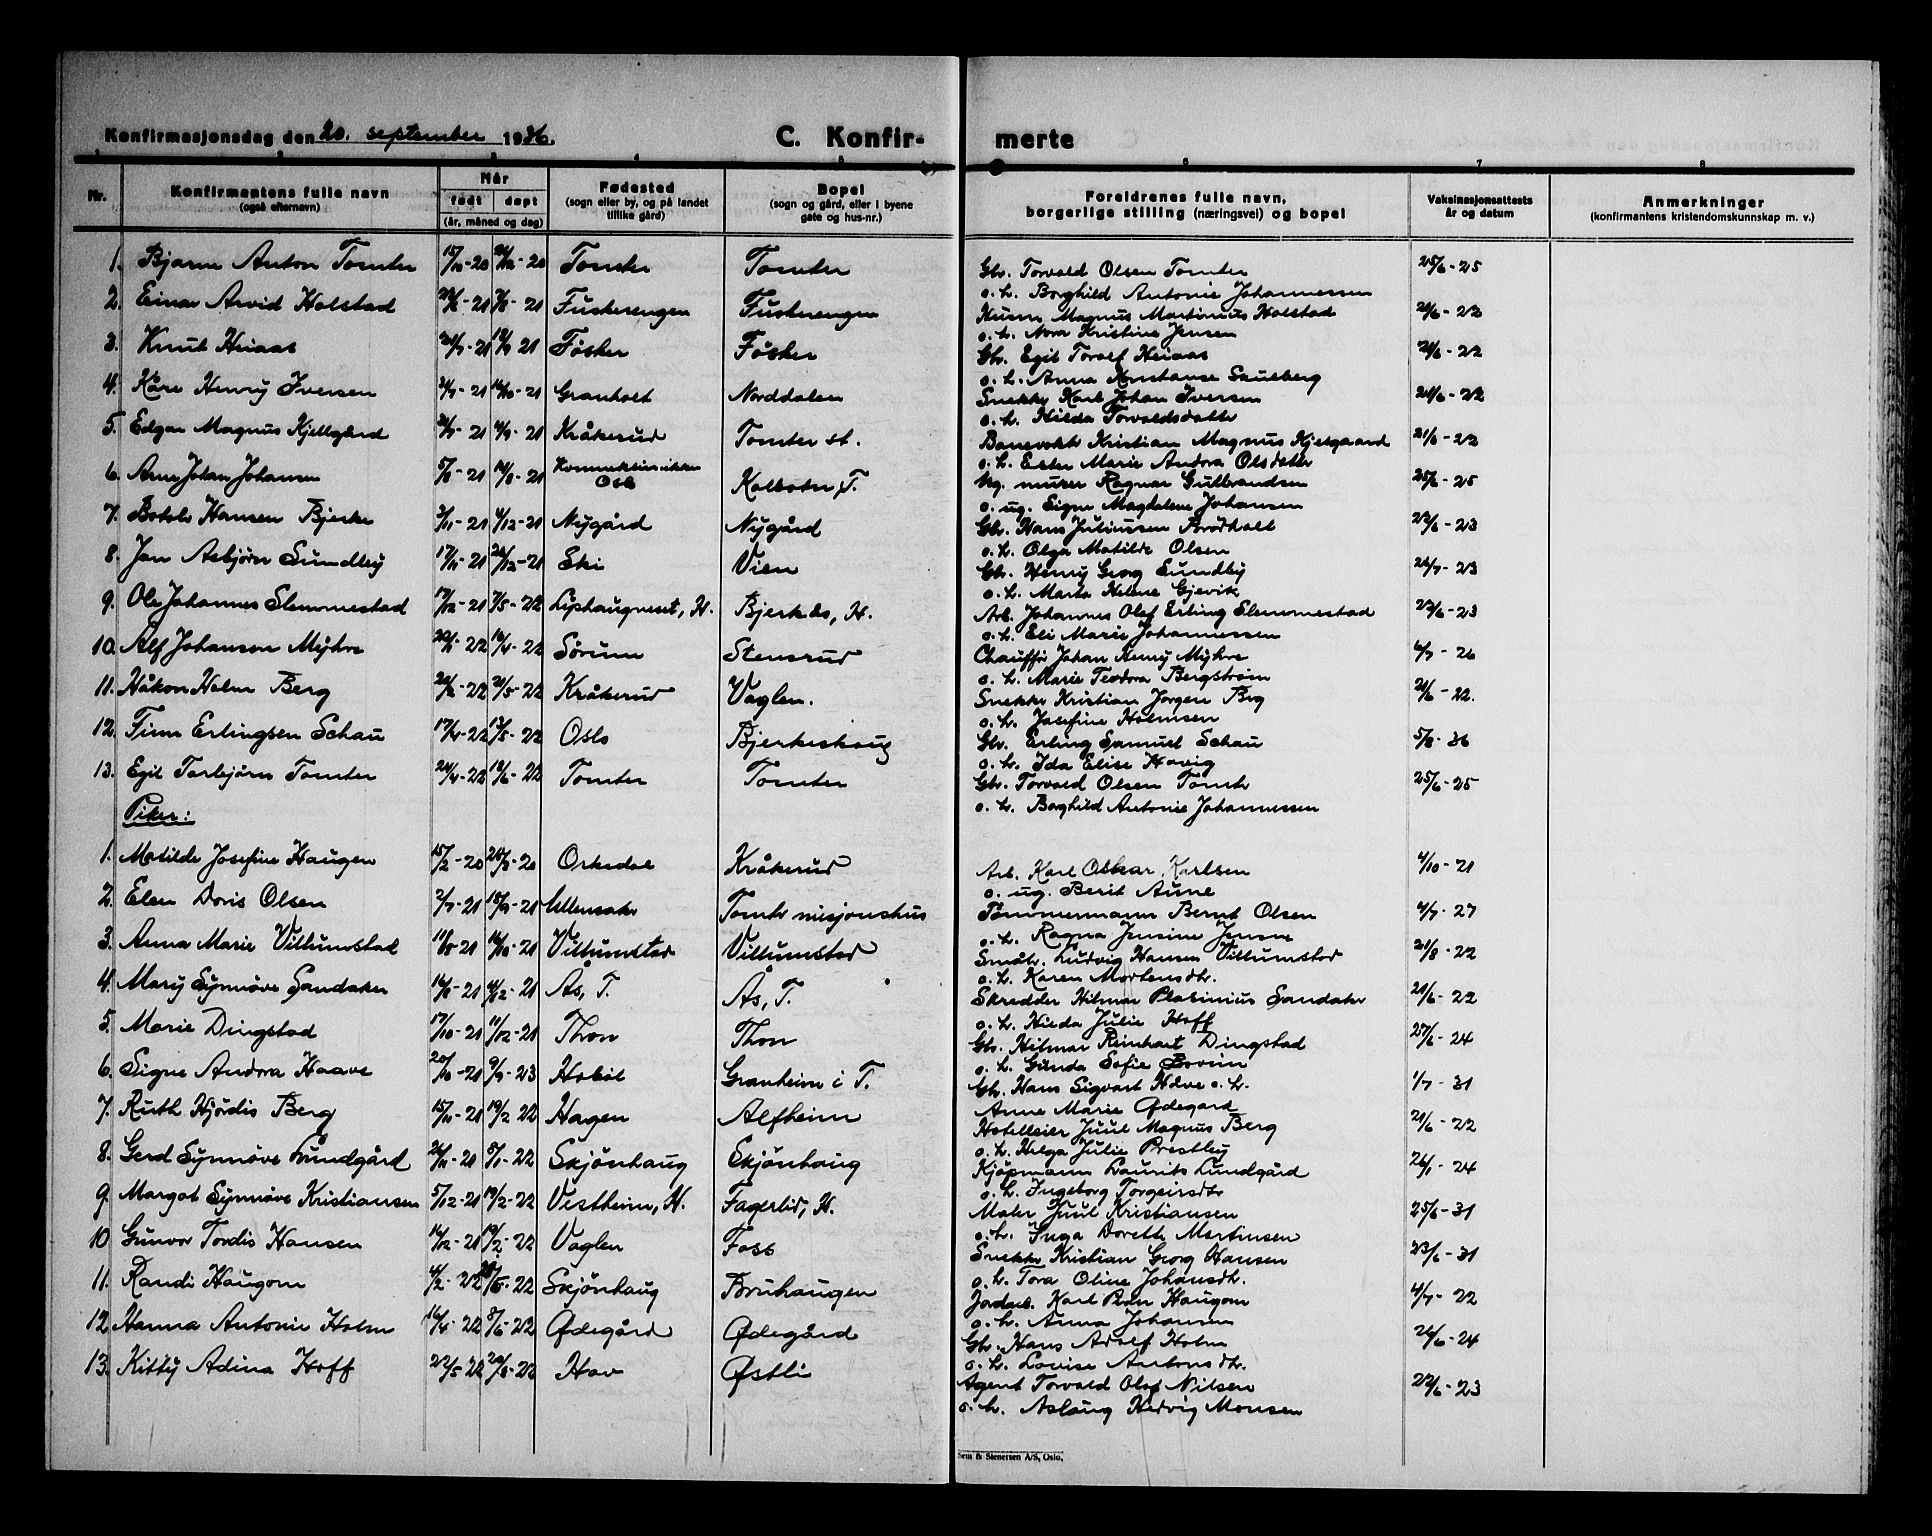 Konfirmasjonsdag den 20. september 1936.
C. Konfir-
merte
1 2 3 4 5 6 7 8
Nr.
Konfirmantens fulle navn
(også efternavn)
Når
født døpt
(år, måned og dag)
Fødested
(sogn eller by, og på landet
tillike gård)
Bopel
(sogn og gård, eller i byene
gate og hus-nr.)
Foreldrenes fulle navn,
borgerlige stilling (næringsvei) og bopel
Vaksinasjonsattests
år og datum
Anmerkninger
(konfirmantens kristendomskunnskap m. v.)
1. Bjarne Anton Tomter Tomter Tomter Gbr. Torvald Olsen Tomter 25/6-25
o. h. Borghild Antonie Johannessen
2. Einar Arvid Holstad Fuskerengen Fuskerengen Husm. Magnus Martinius Holstad
o. h. Nora Kristine Jensen
3. Knut Heiaas Fosker Fosker Gbr. Egil Toralf Heiaas
o. h. Anna Konstanse Skulberg
4. Kåre Henry Iversen Granholt Norddalen Snekker Karl Johan Iversen
o. h. Hilda Torvaldsdatter
5. Edgar Magnus Kjellgård Kråkerud Tomter st. Banevokt. Kristian Magnus Kjelgaard 21/6-22
o. h. Ester Marie Andra Olsdatter
6. Arne Johan Johansen Oslo Kolbotn, T. Ug. murer Ragnar Gulbrandsen 25/6-25
o. ug. Signe Magdalene Johansen
7. Botolv Hansen Bjerke Nygård Nygård Gbr. Hans Juliussen Brødholt
o. h. Olga Matilde Olsen
8. Jan Asbjørn Sundby Ski Vien Gbr. Henry Georg Sundby
o. h. Marta Helene Gjevik
9. Ole Johannes Slemmestad 7/5-22 Liphaugneset, H. Bjerkås, H. Arb. Johannes Olaf Erling Slemmestad
o. h. Eli Marie Johannessen
10. Alf Johanson Myhre 16/4-22 Sørum Stensrud Chauffør Johan Henry Myhre 4/7-26
o. h. Marie Teodora Bergstrøm
11. Håkon Holm Berg Kråkerud Vaglen. Snekker Kristian Jørgen Berg 21/6-22.
o. h. Josefine Holmsen
12. Finn Erlingsen Schau 17/4-22 13/5-22 Oslo Bjerkeskaug Gbr. Erling Samuel Schau 5/8-36
o. h. Ida Elise Havig
13. Egil Torbjørn Tomter 24/4-22 Tomter Tomter Gbr. Torvald Olsen Tomter 25/6-25
o. h. Borghild Antonie Johannessen
Piker:
1. Matilde Josefine Haugen 15/2-20 Orkedal Kråkerud Arb. Karl Oskar Karlsen 4/10-21
o. ug. Berit Aune
2. Elen Doris Olsen 2/7-21 Ullensaker Tomter misjonshus Tømmermann Bernt Olsen 4/7-27
o. h. Ragna Jensine Jensen
3. Anna Marie Villumstad Villumstad Villumstad Småbr. Ludvig Hansen Villumstad 21/8-22
o. h. Karen Mortensdtr.
4. Mary Synnøve Sandaker Ås, T. Ås, T. Skredder Hilmar Plasinius Sandaker 21/6-22
o. h. Hilda Julie Hoff
5. Marie Dingstad 17/10-21 11/12-21 Thon Thon Gbr. Hilmar Reinhart Dingstad 27/6-24
o. h. Gunda Sofie Bovim
6. Signe Andora Haave 20/10-21 9/9-23 Hobøl Granheim i T. Gbr. Hans Sigvart Have o. h. 1/7-31
Anne Marie Ødegard
7. Ruth Hjørdis Berg 15/11-21 19/2-22 Hagen Alfheim Hotelleier Juul Magnus Berg 21/6-22
o. h. Helga Julie Prestby
8. Gerd Synnøve Lundgård 8/1-22 Skjønhaug Skjønhaug Kjøpmann Laurits Lundgård 26/1-24
o. h. Ingeborg Torgeirsdtr
9. Margot Synnøve Kristiansen 5/12-21 19/2-22 Vestheim, H. Fagerlid, H. Maler Juul Kristiansen 25/6-31
o. h. Inga Dorette Martinsen
10 Gunvor Tordis Hansen 16/12-21 19/2-22 Vaglen Foss Snekker Kristian Georg Hansen 23/6-31
o. h. Tora Oline Johansdtr.
11. Randi Haugom 4/2-22 Skjønhaug Bruhaugen Jordarb. Karl Peder Haugom 4/7-22
o. h. Anna Johansen
12. Hanna Antonie Holm 16/4-22 8/6-22 Ødegård Ødegård Gbr. Hans Adolf Holm 26/6-24
o. h. Lovise Antonsdtr.
13. Kitty Adina Hoff 22/5-22 20/8-22 Hov Østli Agent Torvald Olaf Nilsen 22/6-23
o. h. Aslaug Hedvig Monsen
Sem & Stenersen A/S, Oslo.